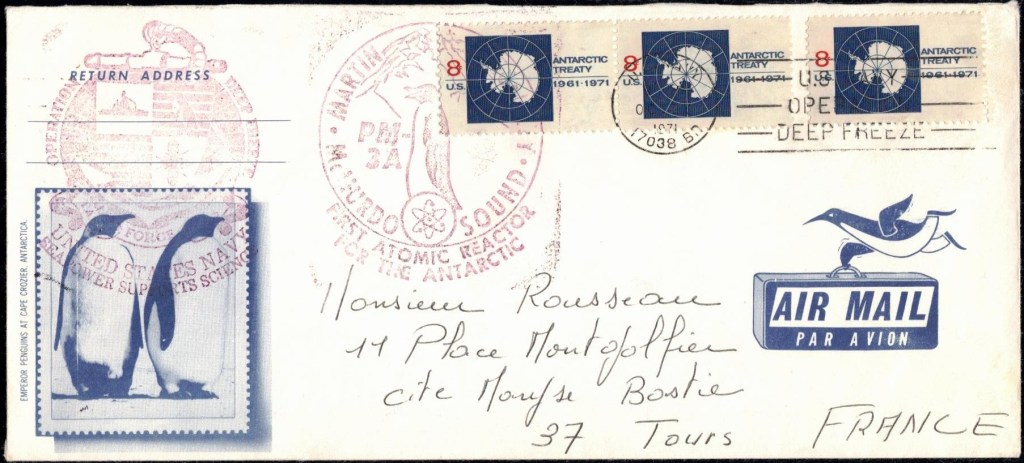 RETURN ADDRESS
OPERATION
FORCE
UNITED STATES NAVY
SEA POWER SUPPORTS SCIENCE
EMPEROR PENGUINS AT CAPE CROZIER, ANTARCTICA.
MARTIN
PM-
3A
McMURDO SOUND
FIRST ATOMIC REACTOR
FOR THE ANTARCTIC
8 U.S. ANTARCTIC TREATY 1961-1971
8 U.S. ANTARCTIC TREATY 1961-1971
8 U.S. ANTARCTIC TREATY 1961-1971
1971
17038 BR
U.S. NAVY
OPERATION
DEEP FREEZE
AIR MAIL
PAR AVION
Monsieur Rousseau
11 Place Montgolfier
cite Maryse Bastié
37 Tours
FRANCE